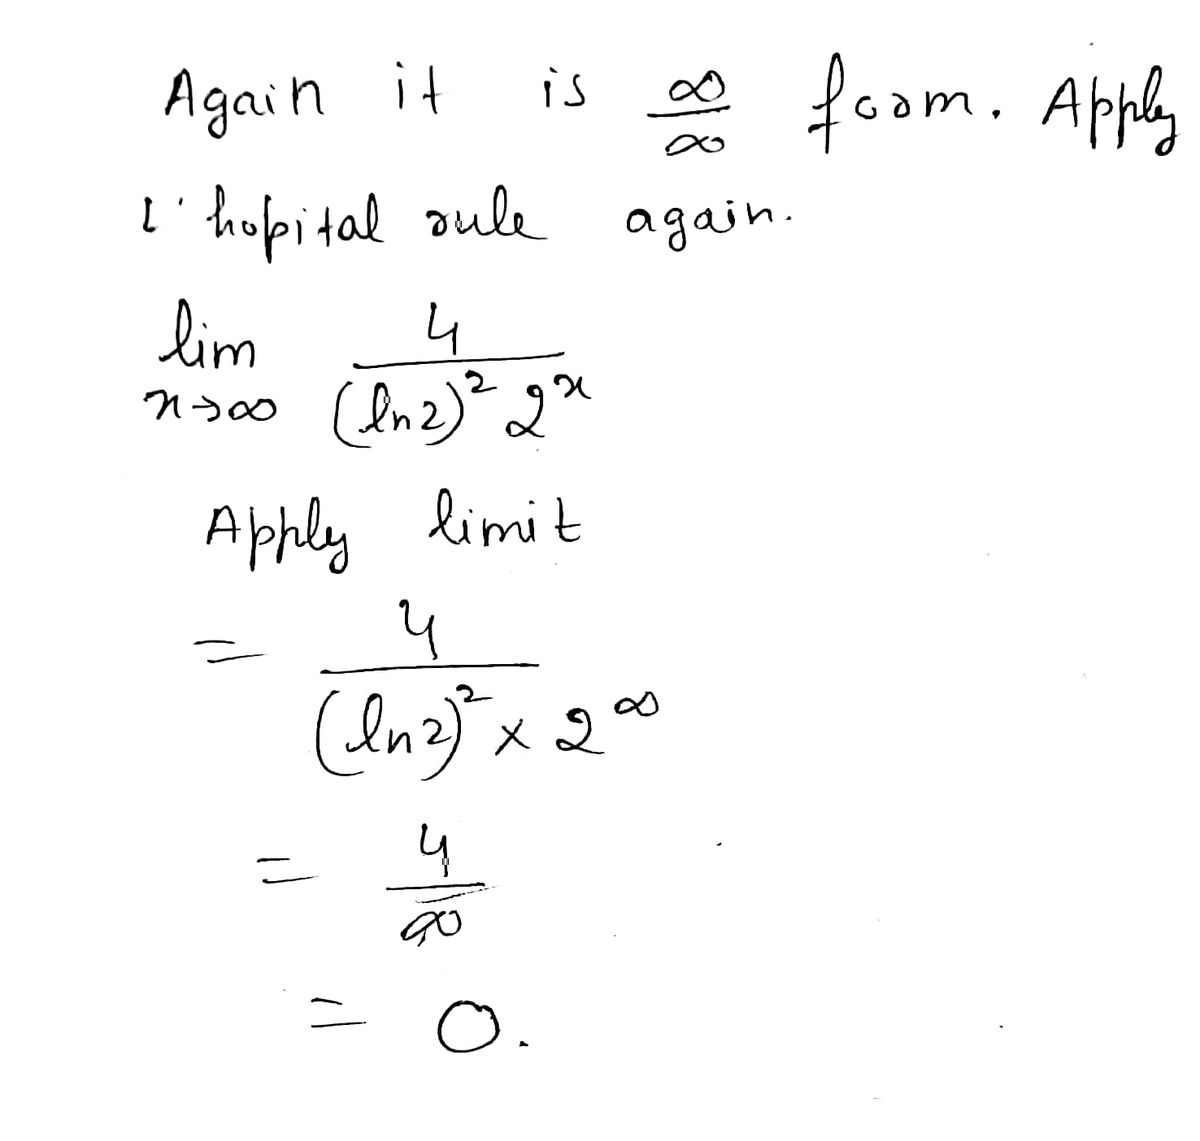 Again it is ∞/∞ form. Apply
l'hopital rule again.
lim x→∞ 4/((ln2)² 2ˣ)
Apply limit
= 4/((ln2)² × 2^∞)
= 4/∞
= 0.